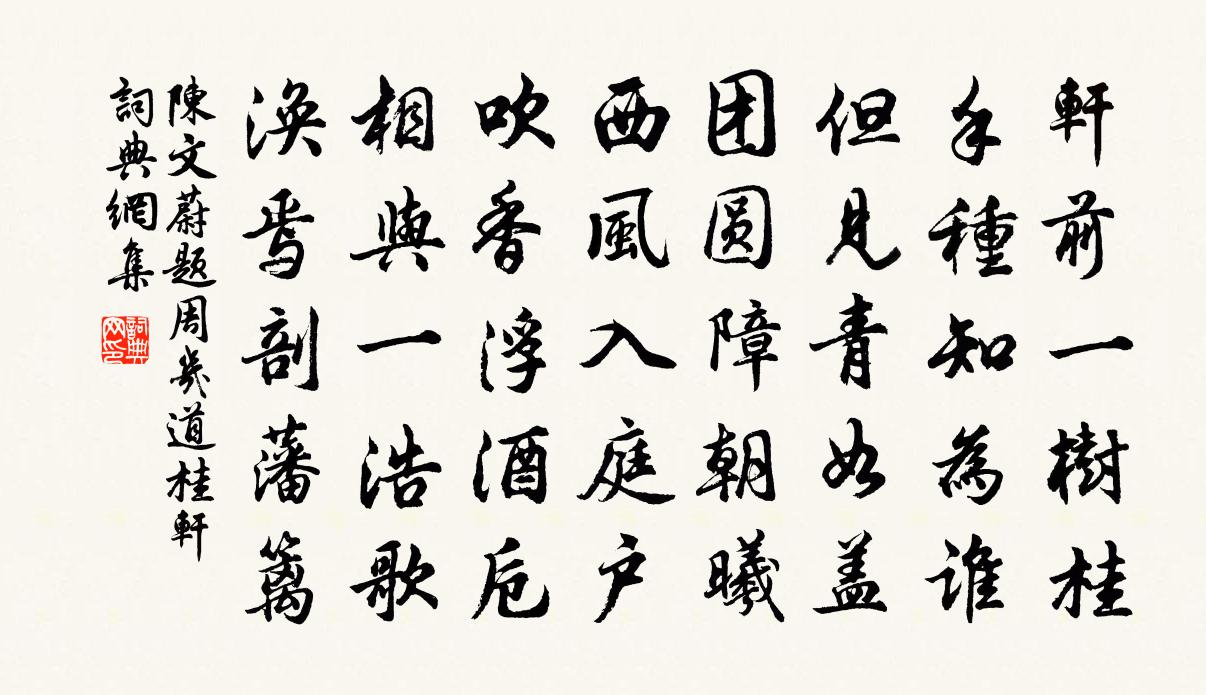 軒前一樹桂
手種知為誰
但見青如盖
团圆障朝曦
西風入庭户
吹香浮酒卮
相與一浩歌
渙焉剖藩篱
陳文蔚题周幾道桂軒
詞典網集
詞典网印